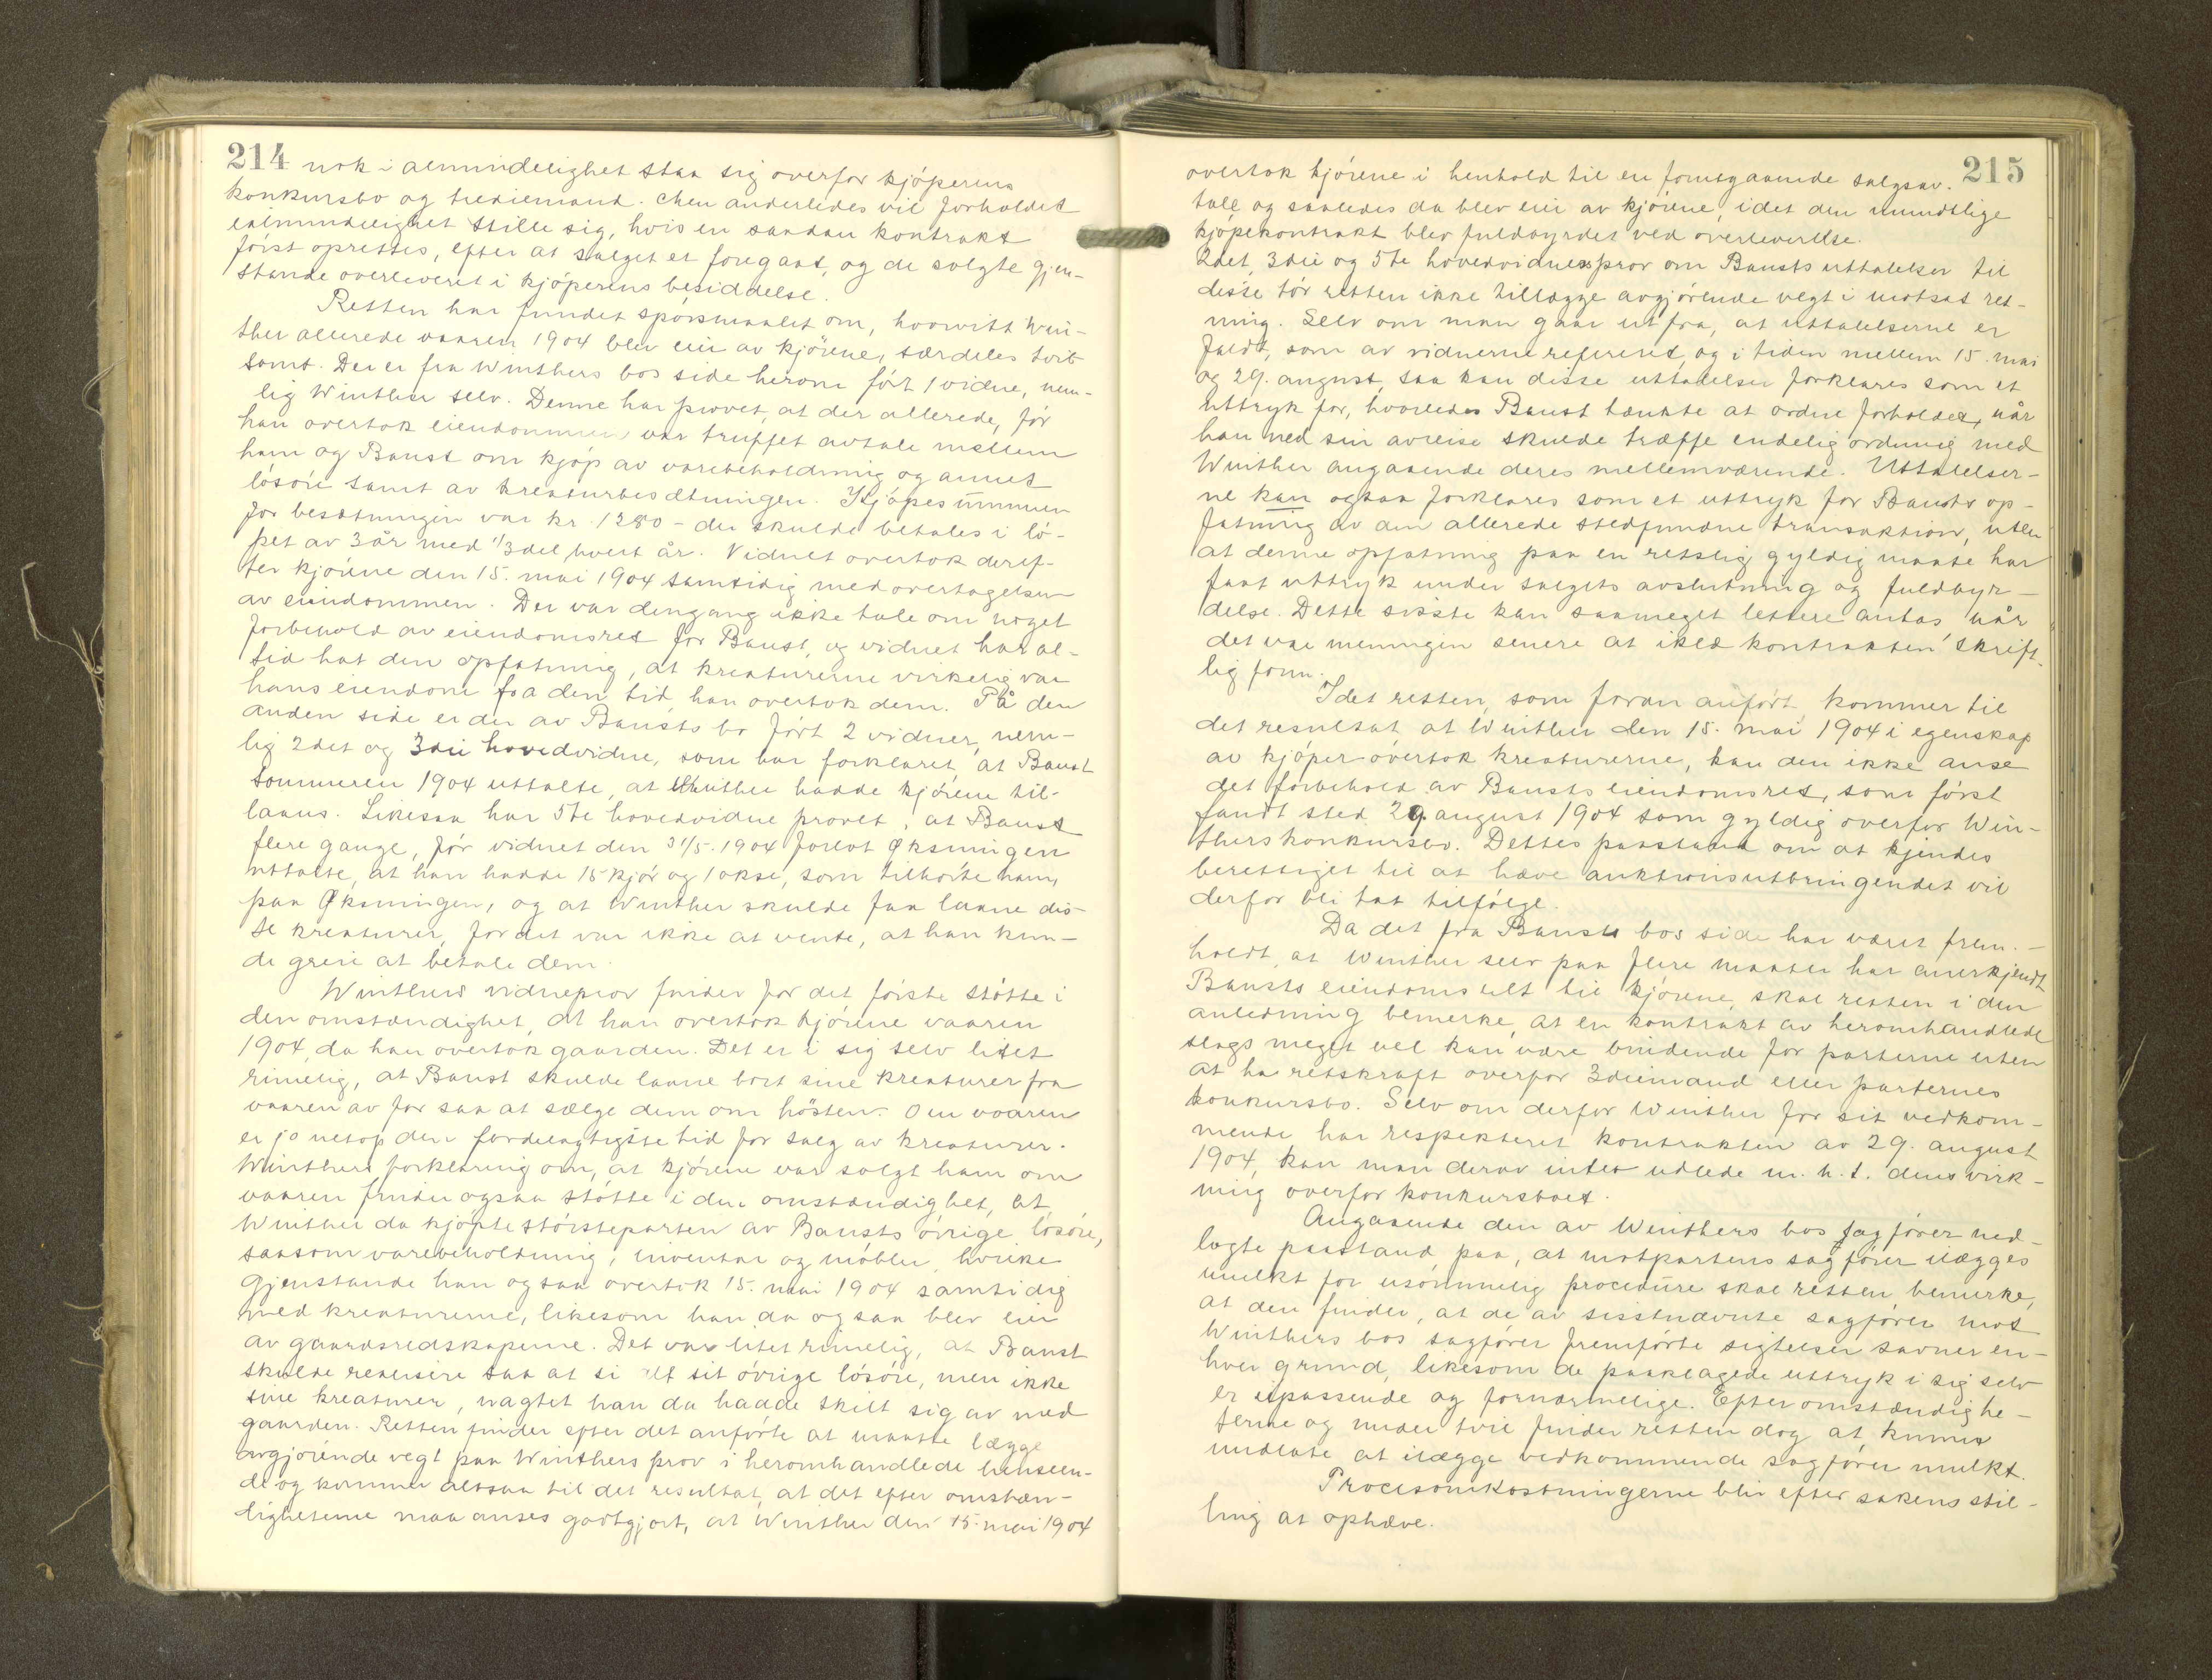 214 nok i almindelighet staa sig overfor kjöperens
konkursbo og trediemand. Men anderledes vil forholdet
i almindelighet stille sig, hvis en saadan kontrakt
först oprettes, efter at salget er foregaat, og de solgte gjen-
stande overleveret i kjöperens besiddelse.
Retten har fundet spörsmaalet om, hvorvitt Win-
ther allerede vaaren 1904 blev eier av kjörene, særdeles tvil-
somt. Der er fra Winthers bos side herom fört 1 vidne, nem-
lig Winther selv. Denne har provet, at der allerede, för
han overtok eiendommen var truffet avtale mellem
ham og Baust om kjöp av varebeholdning og annet
lösöre samt av kreaturbesætningen. Kjöpesummen
for besætningen var kr. 1280 - der skulde betales i lö-
pet av 3 år med 1/3del hvert år. Vidnet overtok deref-
ter kjörene den 15. mai 1904 samtidig med overtagelsen
av eiendommen. Der var dengang ikke tale om noget
forbehold av eiendomsret for Baust, og vidnet har al-
tid hat den opfatning, at kreaturerne virkelig var
hans eiendom fra den tid, han overtok dem. På den
anden side er der av Bausts bo fört 2 vidner, nem-
lig 2det og 3die hovedvidne, som har forklaret, at Baust
sommeren 1904 uttalte, at Winther hadde kjörene til-
laans. Likesaa har 5te hovedvidne provet, at Baust
flere gange, för vidnet den 31/5. 1904 forlot Öksningen
uttalte, at han hadde 15 kjör og 1 okse, som tilhörte ham,
paa Öksningen, og at Winther skulde faa laane dis-
se kreaturer, for det var ikke at vente, at han kun-
de greie at betale dem.
Winthers vidneprov finder for det förste stötte i
den omstændighet, at han overtok kjörene vaaren
1904, da han overtok gaarden. Det er i sig selv litet
rimelig, at Baust skulde laane bort sine kreaturer fra
vaaren av for saa at sælge dem om hösten. Om vaaren
er jo netop den fordelagtigste tid for salg av kreaturer.
Winthers forklaring om, at kjörene var solgt ham om
vaaren finder ogsaa stötte i den omstændighet, at
Winther da kjöpte störsteparten av Bausts övrige lösöre,
saasom varebeholdning, inventar og möbler, hvilke
gjenstande han ogsaa overtok 15. mai 1904 samtidig
med kreaturerne, likesom han da ogsaa blev eier
av gaardsredskaperne. Det var litet rimelig, at Baust
skulde realisere saa at si alt sit övrige lösöre, men ikke
sine kreaturer, uagtet han da hadde skilt sig av med
gaarden. Retten finder efter det anförte at maatte lægge
avgjörende vegt paa Winthers prov i heromhandlede henseen-
de og kommer altsaa til det resultat, at det efter omstæn-
dighetene maa anses godtgjort, at Winther den 15. mai 1904
215
overtok kjörene i henhold til en foregaaende salgsav-
tale og saaledes da blev eier av kjörene, idet den mundtlige
kjöpekontrakt blev fuldbyrdet ved overleverelse.
2det, 3die og 5te hovedvidnes prov om Bausts uttalelser til
disse tör retten ikke tillægge avgjörende vegt i motsat ret-
ning. Selv om man gaar ut fra, at uttalelserne er
faldt, som av vidnerne refereret, og i tiden mellem 15. mai
og 29. august, saa kan disse uttalelser forklares som et
uttryk for, hvorledes Baust tænkte at ordne forholdet, når
han ved sin avreise skulde træffe endelig ordning med
Winther angaaende deres mellemværende. Uttalelser-
ne kan ogsaa forklares som et uttryk for Bausts op-
fatning av den allerede stedfundne transaktion, uten
at denne opfatning paa en retslig gyldig maate har
faat uttryk under salgets avslutning og fuldbyr-
delse. Dette sisste kan saameget lettere antas når
det var meningen senere at iklæ kontrakten skrift-
lig form.
Idet retten, som foran anfört kommer til
det resultat at Winther den 15. mai 1904 i egenskap
av kjöper overtok kreaturerne, kan den ikke anse
det forbehold av Bausts eiendomsret, som först
fandt sted 29. august 1904 som gyldig overfor Win-
thers konkursbo. Dettes paastand om at kjendes
berettiget til at hæve auktionsutbringendet vil
derfor bli tat tilfölge.
Da det fra Bausts bos side har været frem-
holdt, at Winther selv paa flere maater har anerkjendt
Bausts eiendomsret til kjörene, skal retten i den
anledning bemerke, at en kontrakt av heromhandlede
slags meget vel kan være bindende for parterne uten
at ha retskraft overfor 3diemand eller parternes
konkursbo. Selv om derfor Winther for sit vedkom-
mende har respekteret kontrakten av 29. august
1904, kan man derav intet utlede m. h. t. dens virk-
ning overfor konkursboet.
Angaaende den av Winthers bos sagförer ned-
lagte paastand paa, at motpartens sagförer ilægges
mulkt for usömmelig procedure skal retten bemerke,
at den finder, at de av sisstnævnte sagförer mot
Winthers bos sagförer fremförte sigtelser savner en-
hver grund, likesom de paaklagede uttryk i sig selv
er upassende og fornærmelige. Efter omstændighe-
terne og under tvil finder retten dog at kunne
undlate at ilægge vedkommende sagförer mulkt.
Procesomkostningerne blir efter sakens stil-
ling at ophæve.